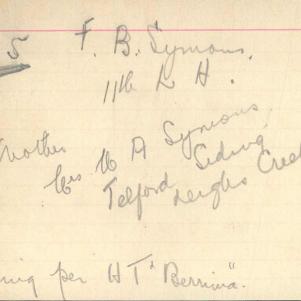 5 F. B. Symons
11th L H.
Mother
Mrs M A Symons
Telford Siding
Leighs Creek
ing per HT "Berrima".